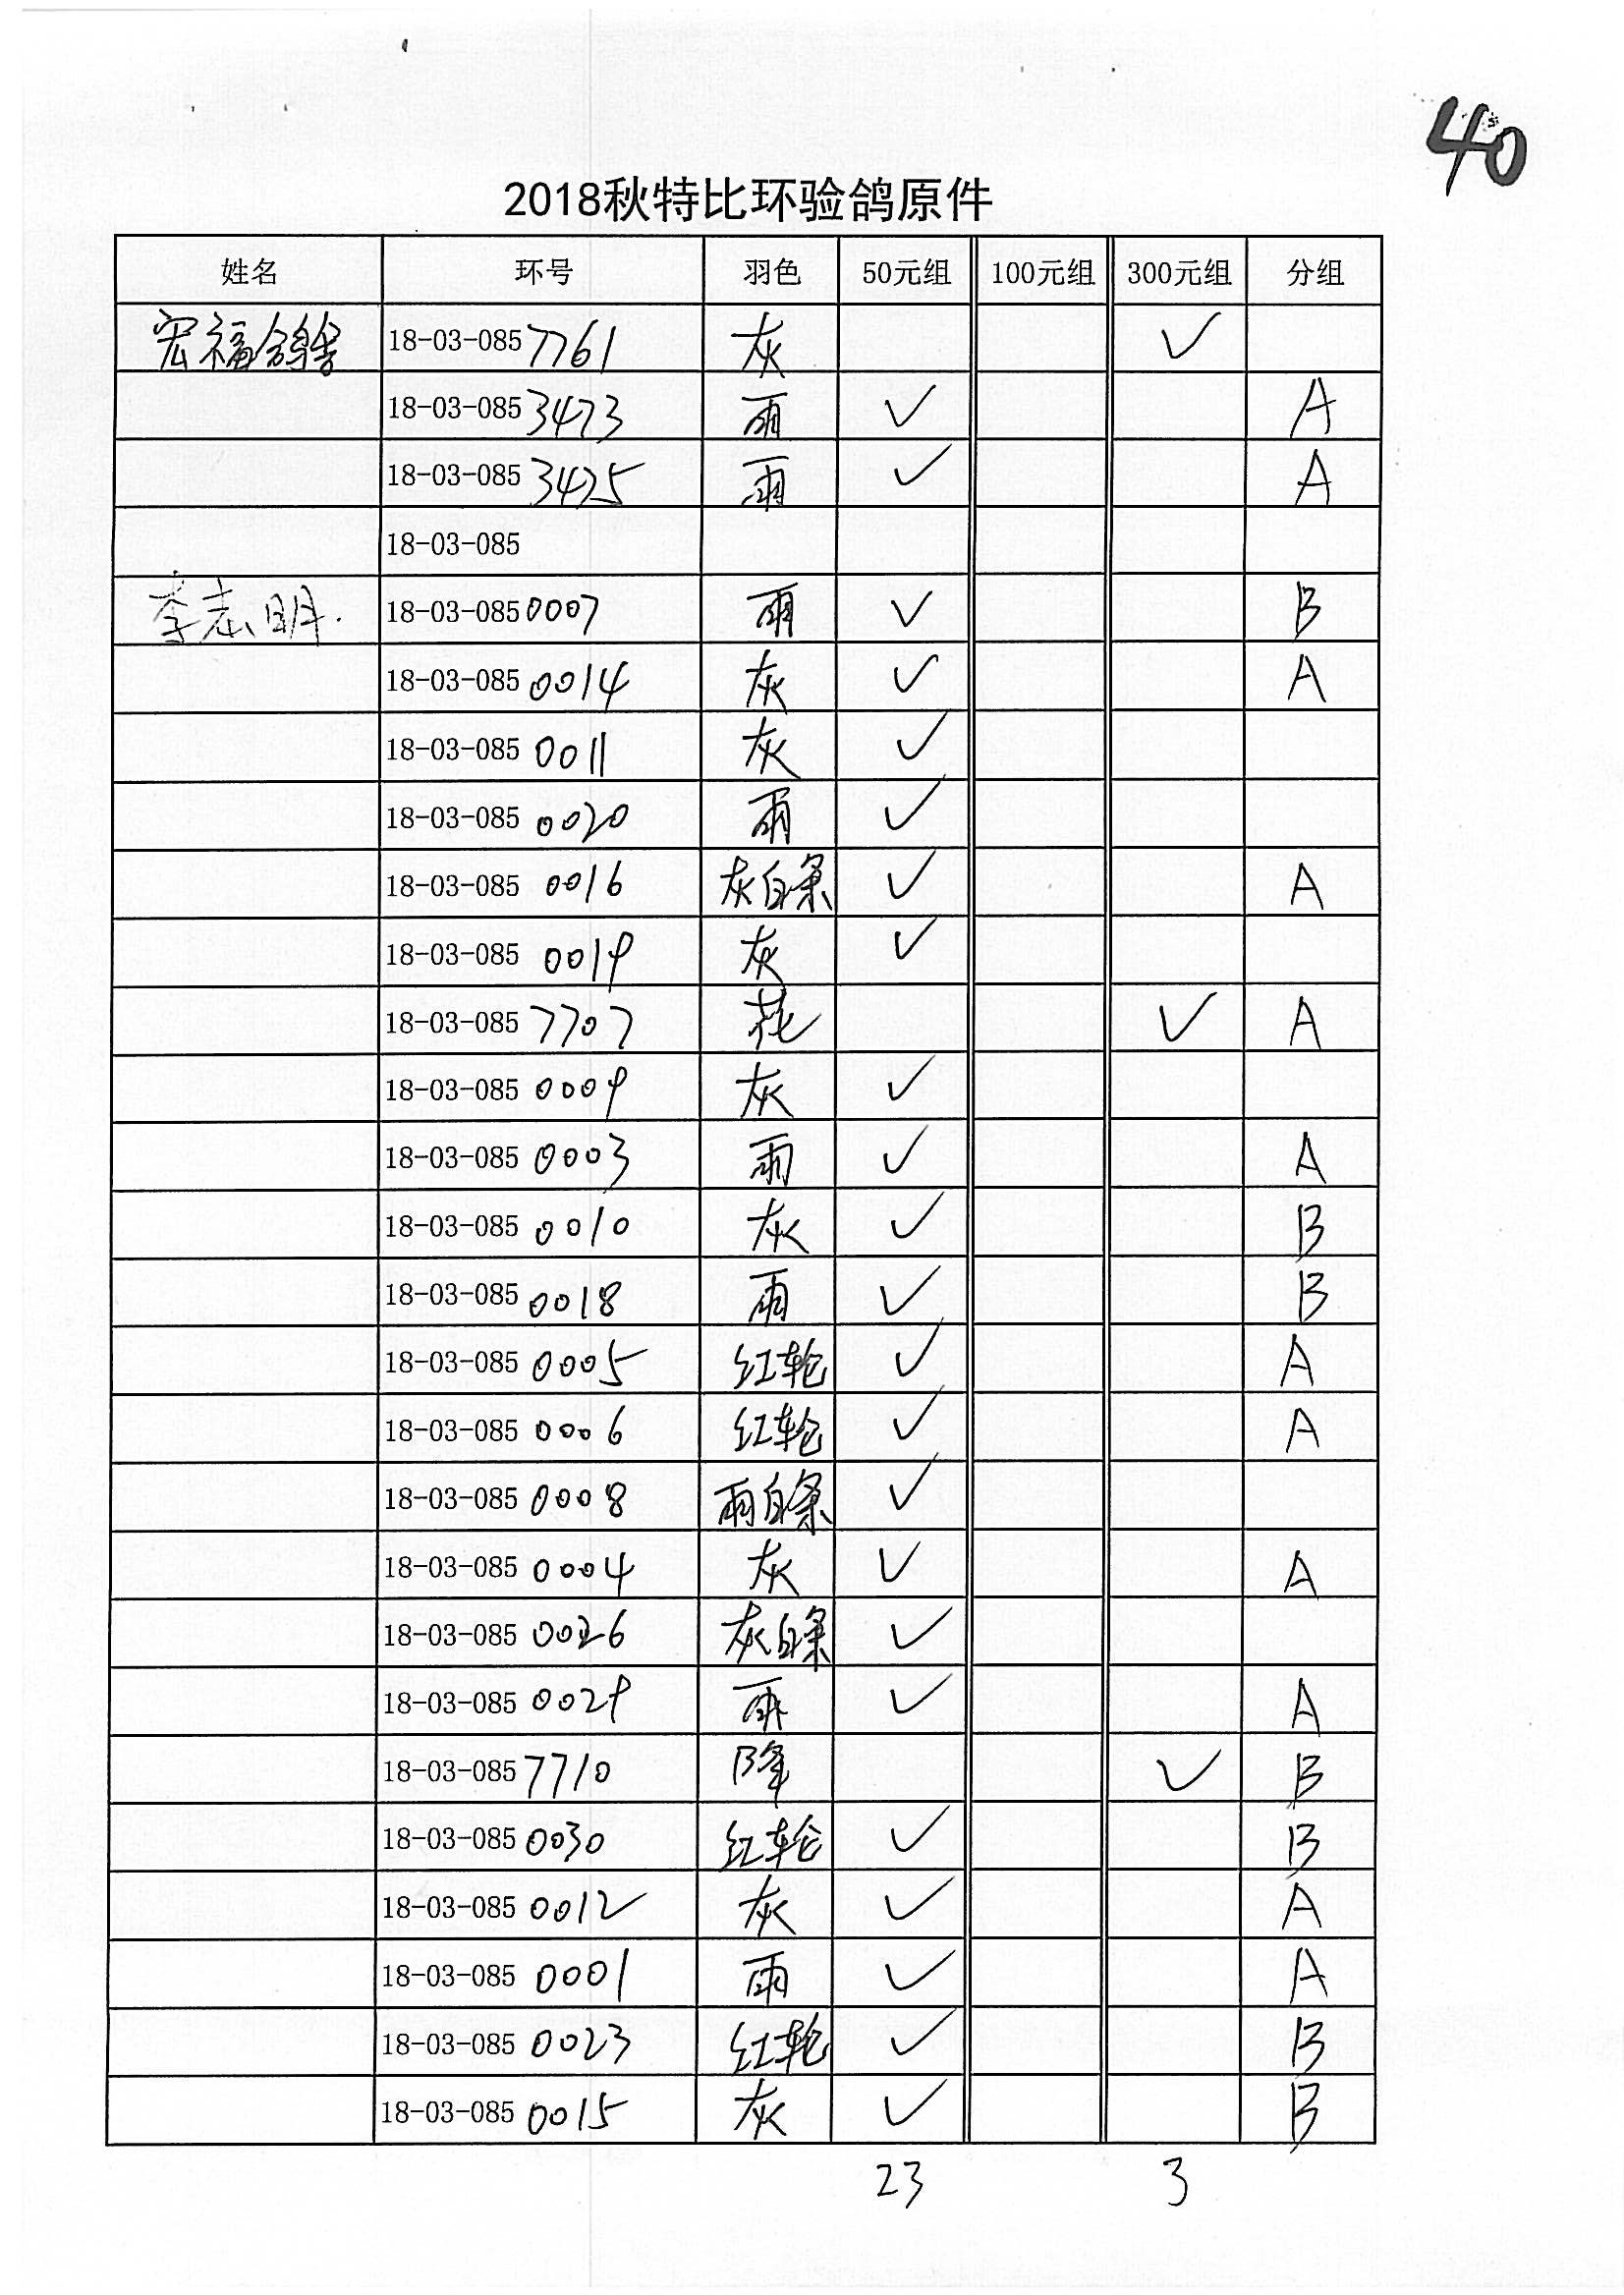 40
2018秋特比环验鸽原件
姓名 环号 羽色 50元组 100元组 300元组 分组
宏福鸽舍 18-03-085 7761 灰 ✓
18-03-085 3473 雨 ✓ A
18-03-085 3475 雨 ✓ A
18-03-085
李志明. 18-03-085 0007 雨 ✓ B
18-03-085 0014 灰 ✓ A
18-03-085 0011 灰 ✓
18-03-085 0020 雨 ✓
18-03-085 0016 灰白条 ✓ A
18-03-085 0019 灰 ✓
18-03-085 7707 花 ✓ A
18-03-085 0009 灰 ✓
18-03-085 0003 雨 ✓ A
18-03-085 0010 灰 ✓ B
18-03-085 0018 雨 ✓ B
18-03-085 0005 红轮 ✓ A
18-03-085 0006 红轮 ✓ A
18-03-085 0008 雨白条 ✓
18-03-085 0004 灰 ✓ A
18-03-085 0026 灰白条 ✓
18-03-085 0029 雨 ✓ A
18-03-085 7710 降 ✓ B
18-03-085 0030 红轮 ✓ B
18-03-085 0012 灰 ✓ A
18-03-085 0001 雨 ✓ A
18-03-085 0023 红轮 ✓ B
18-03-085 0015 灰 ✓ B
23 3